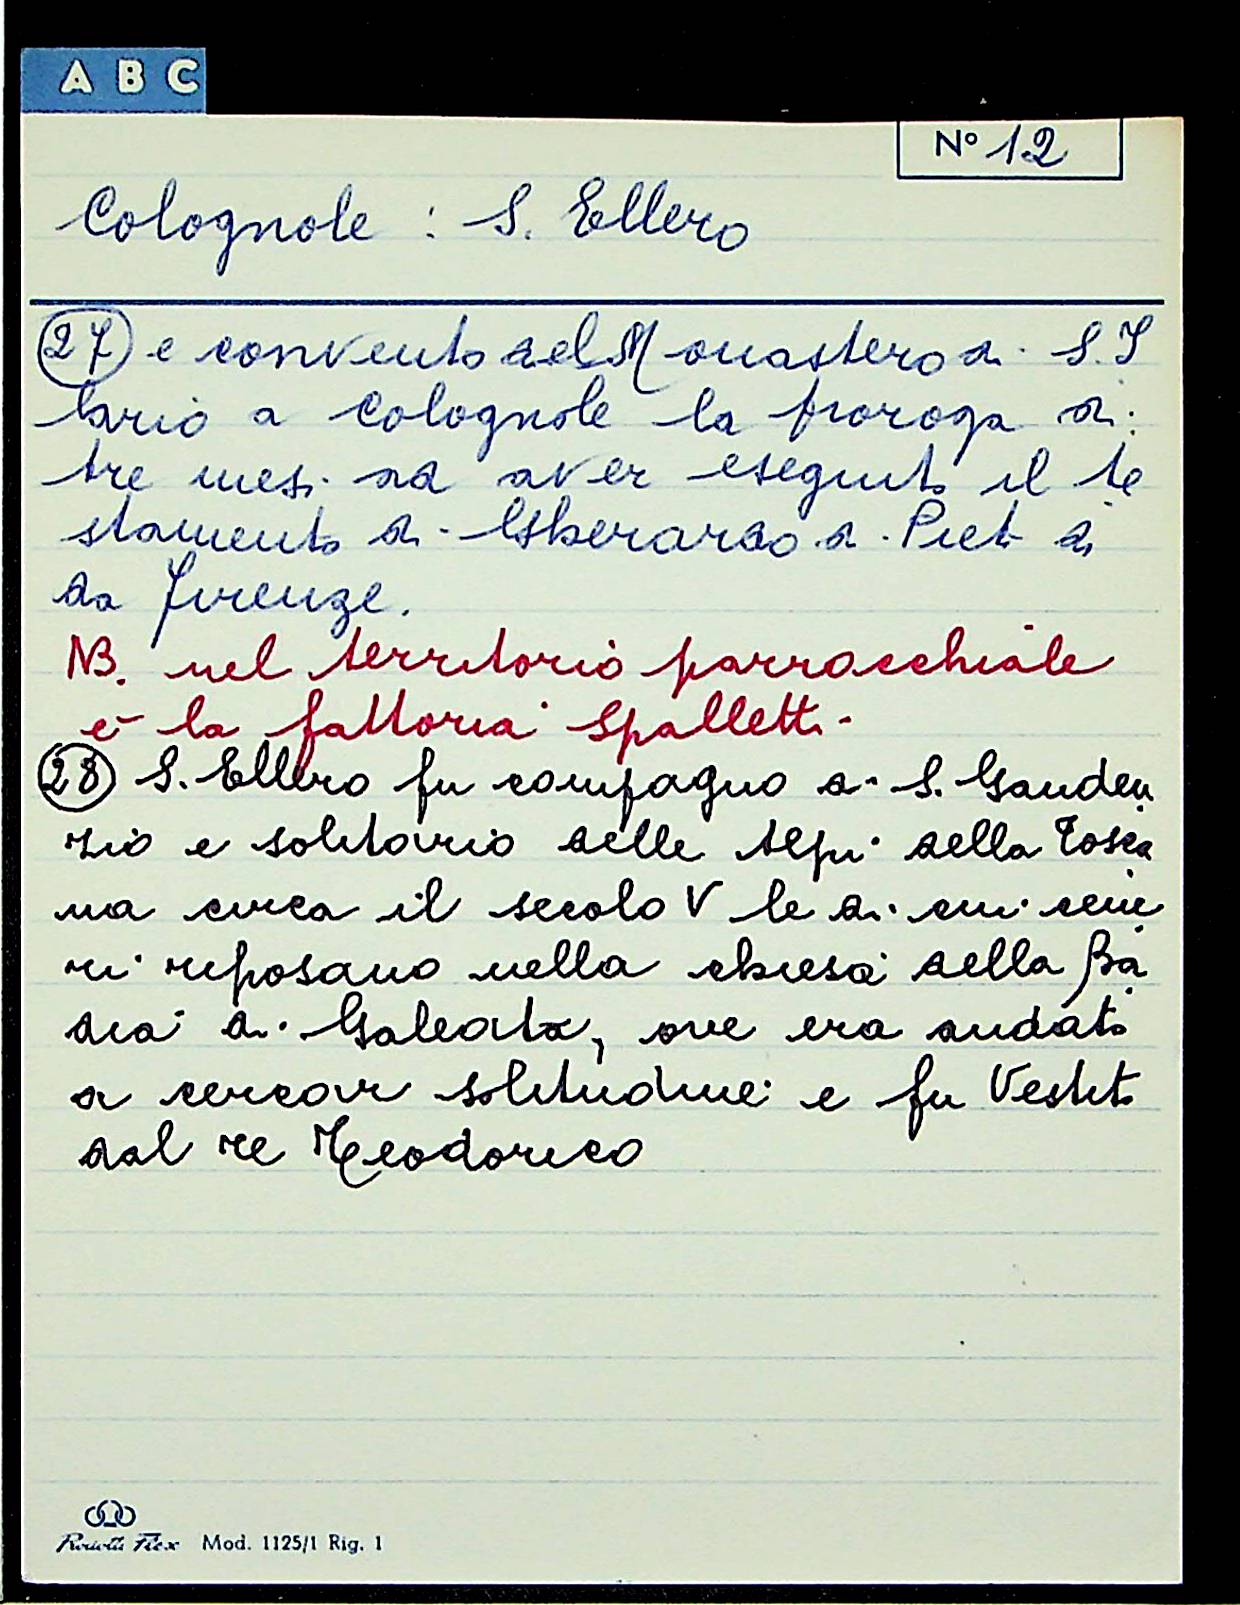 A B C
Nº 12
Colognole : S. Ellero
27 e convento del Monastero di S. I
lario a Colognole la proroga di
tre mesi ad aver eseguito il te
stamento di Gherardo di Pieto di
da Firenze.
NB. nel territorio parrocchiale
è la fattoria Spalletti.
28 S. Ellero fu compagno di S. Gauden
zio e solitario delle Alpi della Tosca
na circa il secolo V le di cui cene
ri riposano nella chiesa della Ba
dia di Galeata, ove era andato
a cercar solitudine e fu Vestito
dal re Teodorico
Mod. 1125/1 Rig. 1